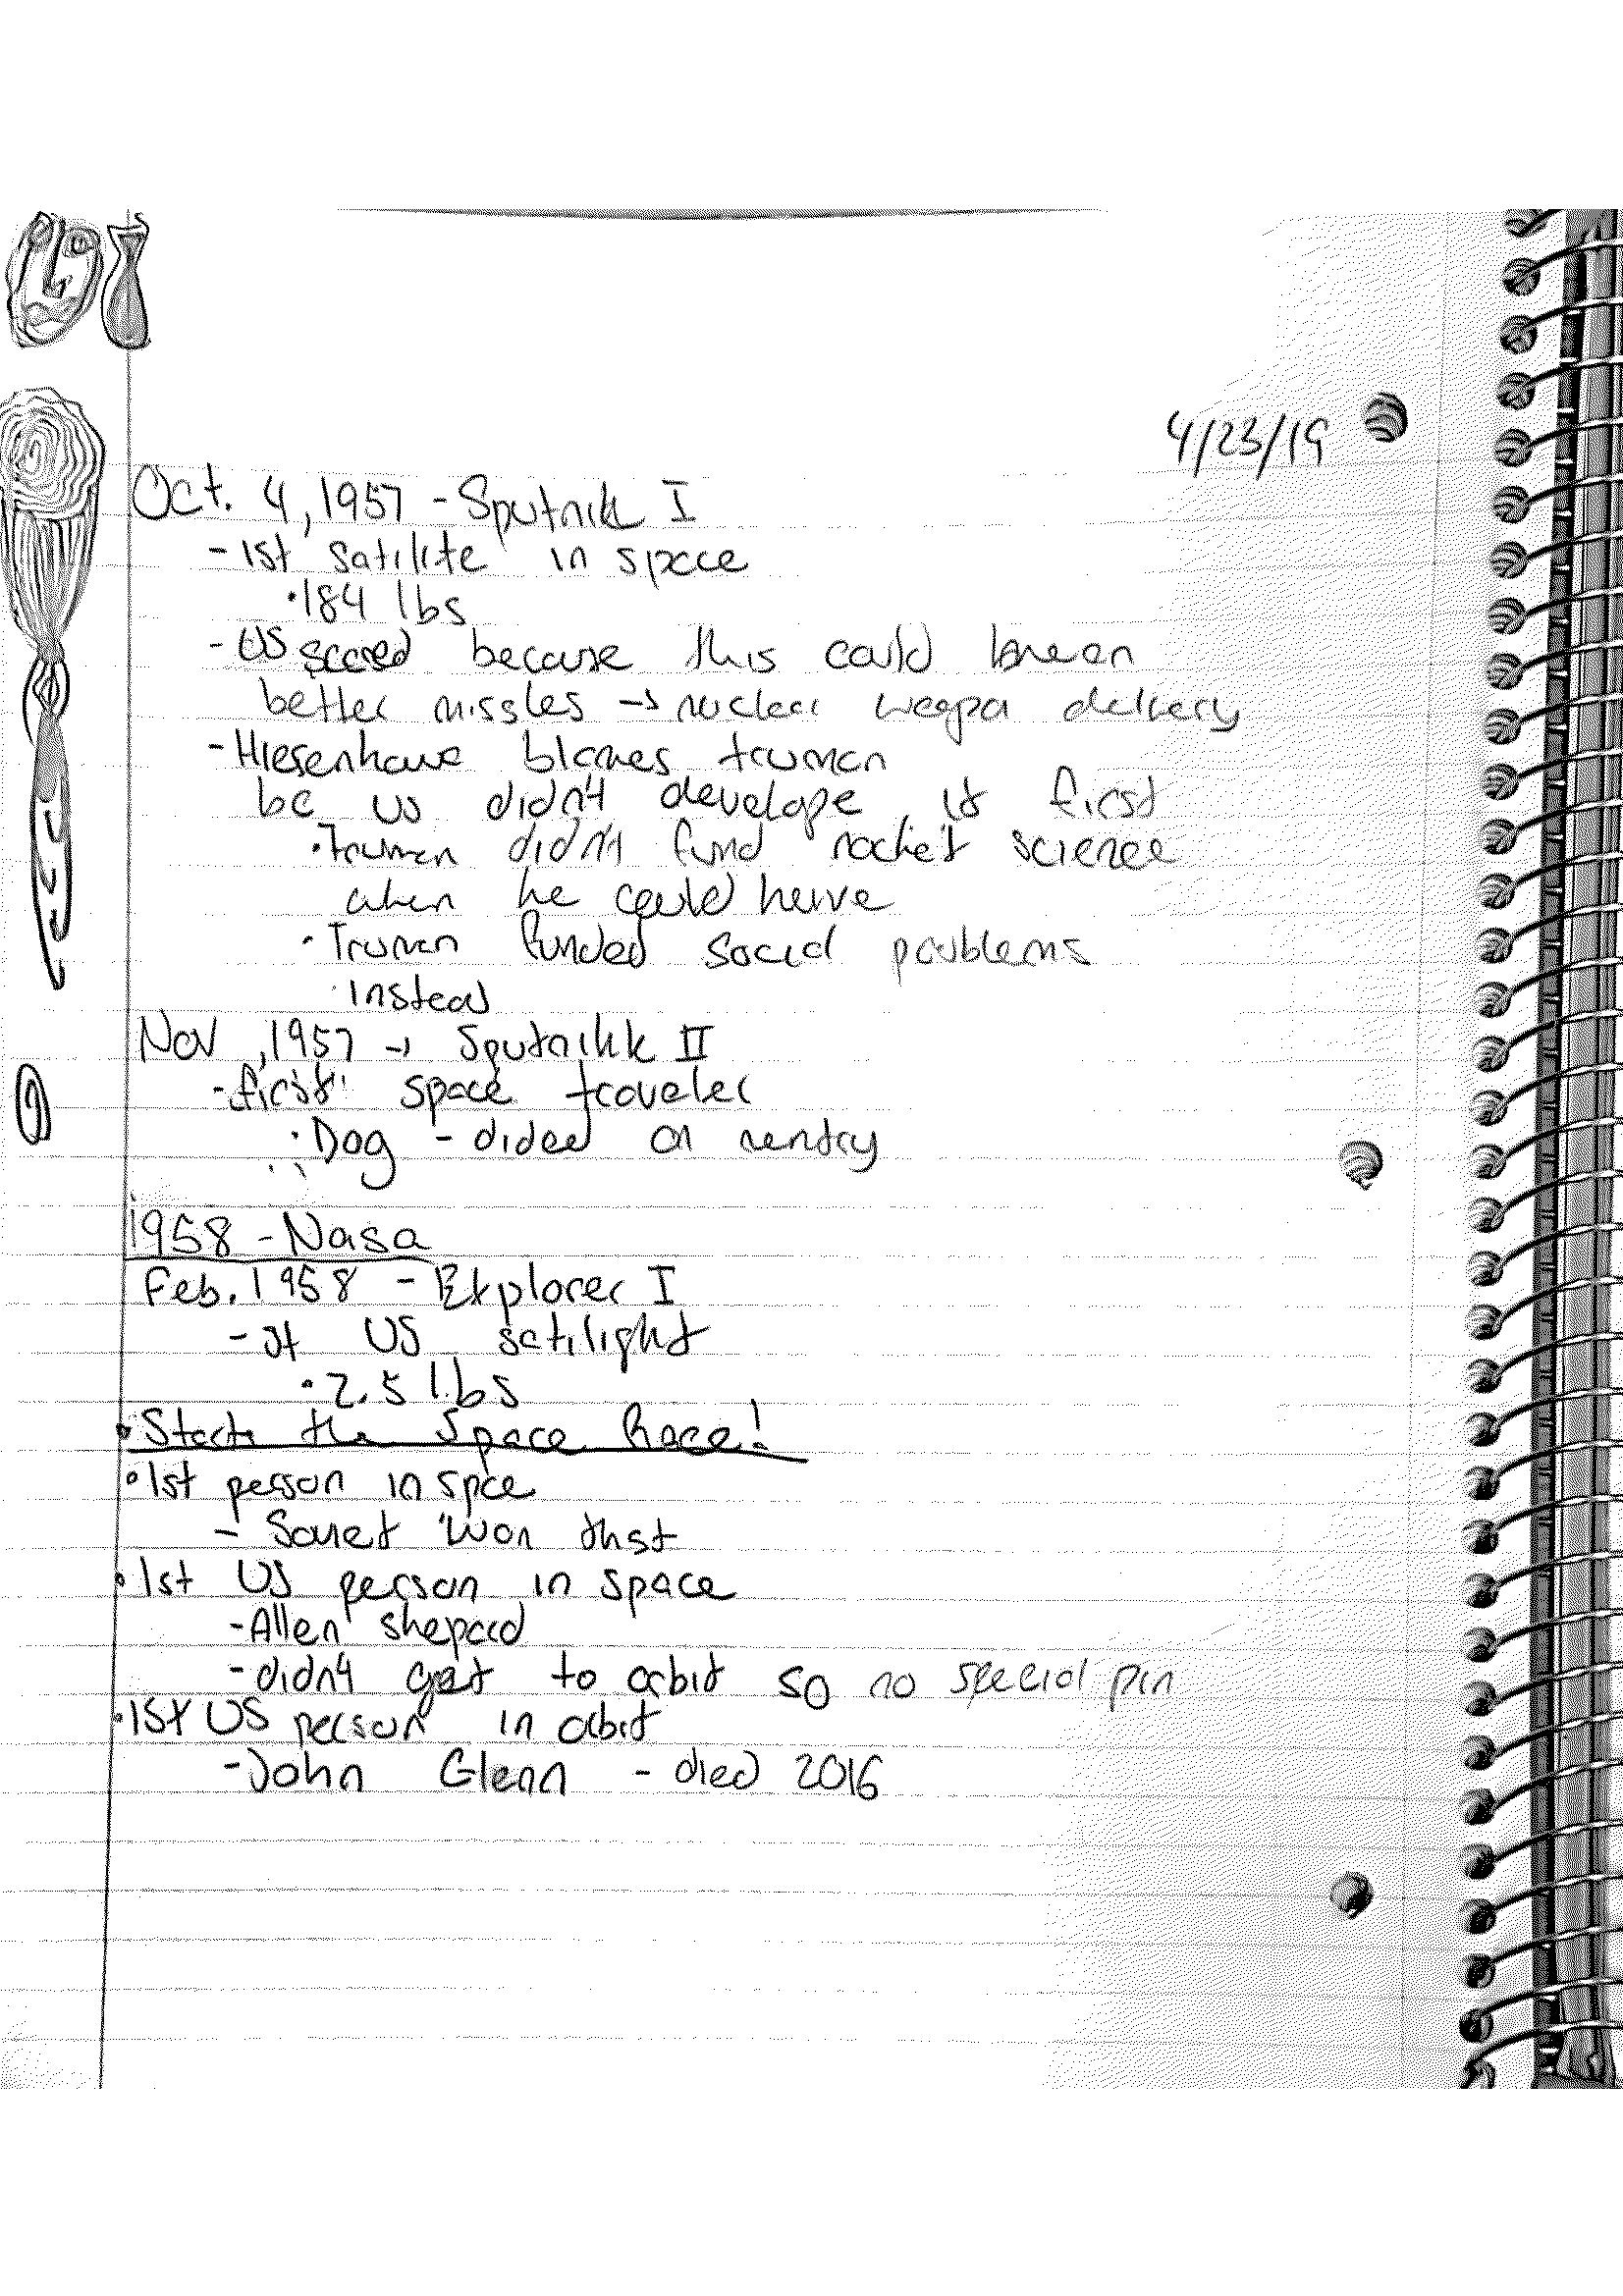 4/23/19
Oct. 4, 1957 - Sputnik I
- 1st satilite in space
• 184 lbs
- US scared because this could
better missles → nuclear weapon delivery
- Hiesenhawe blames truman
bc US didn't develope it first
• Truman didn't fund rocket science
when he could have
• Truman funded social problems
instead
Nov , 1957 → Sputnikk II
- first space traveler
• Dog - dided on rentry
1958 - Nasa
Feb. 1958 - Explorer I
- st US satilight
• 2.5 lbs
• Starts the Space Race!
• 1st person in spce
- Soviet won thst
• 1st US person in space
- Allen shepard
- didn't get to orbit so no special pin
• 1st US person in orbit
- John Glenn - died 2016